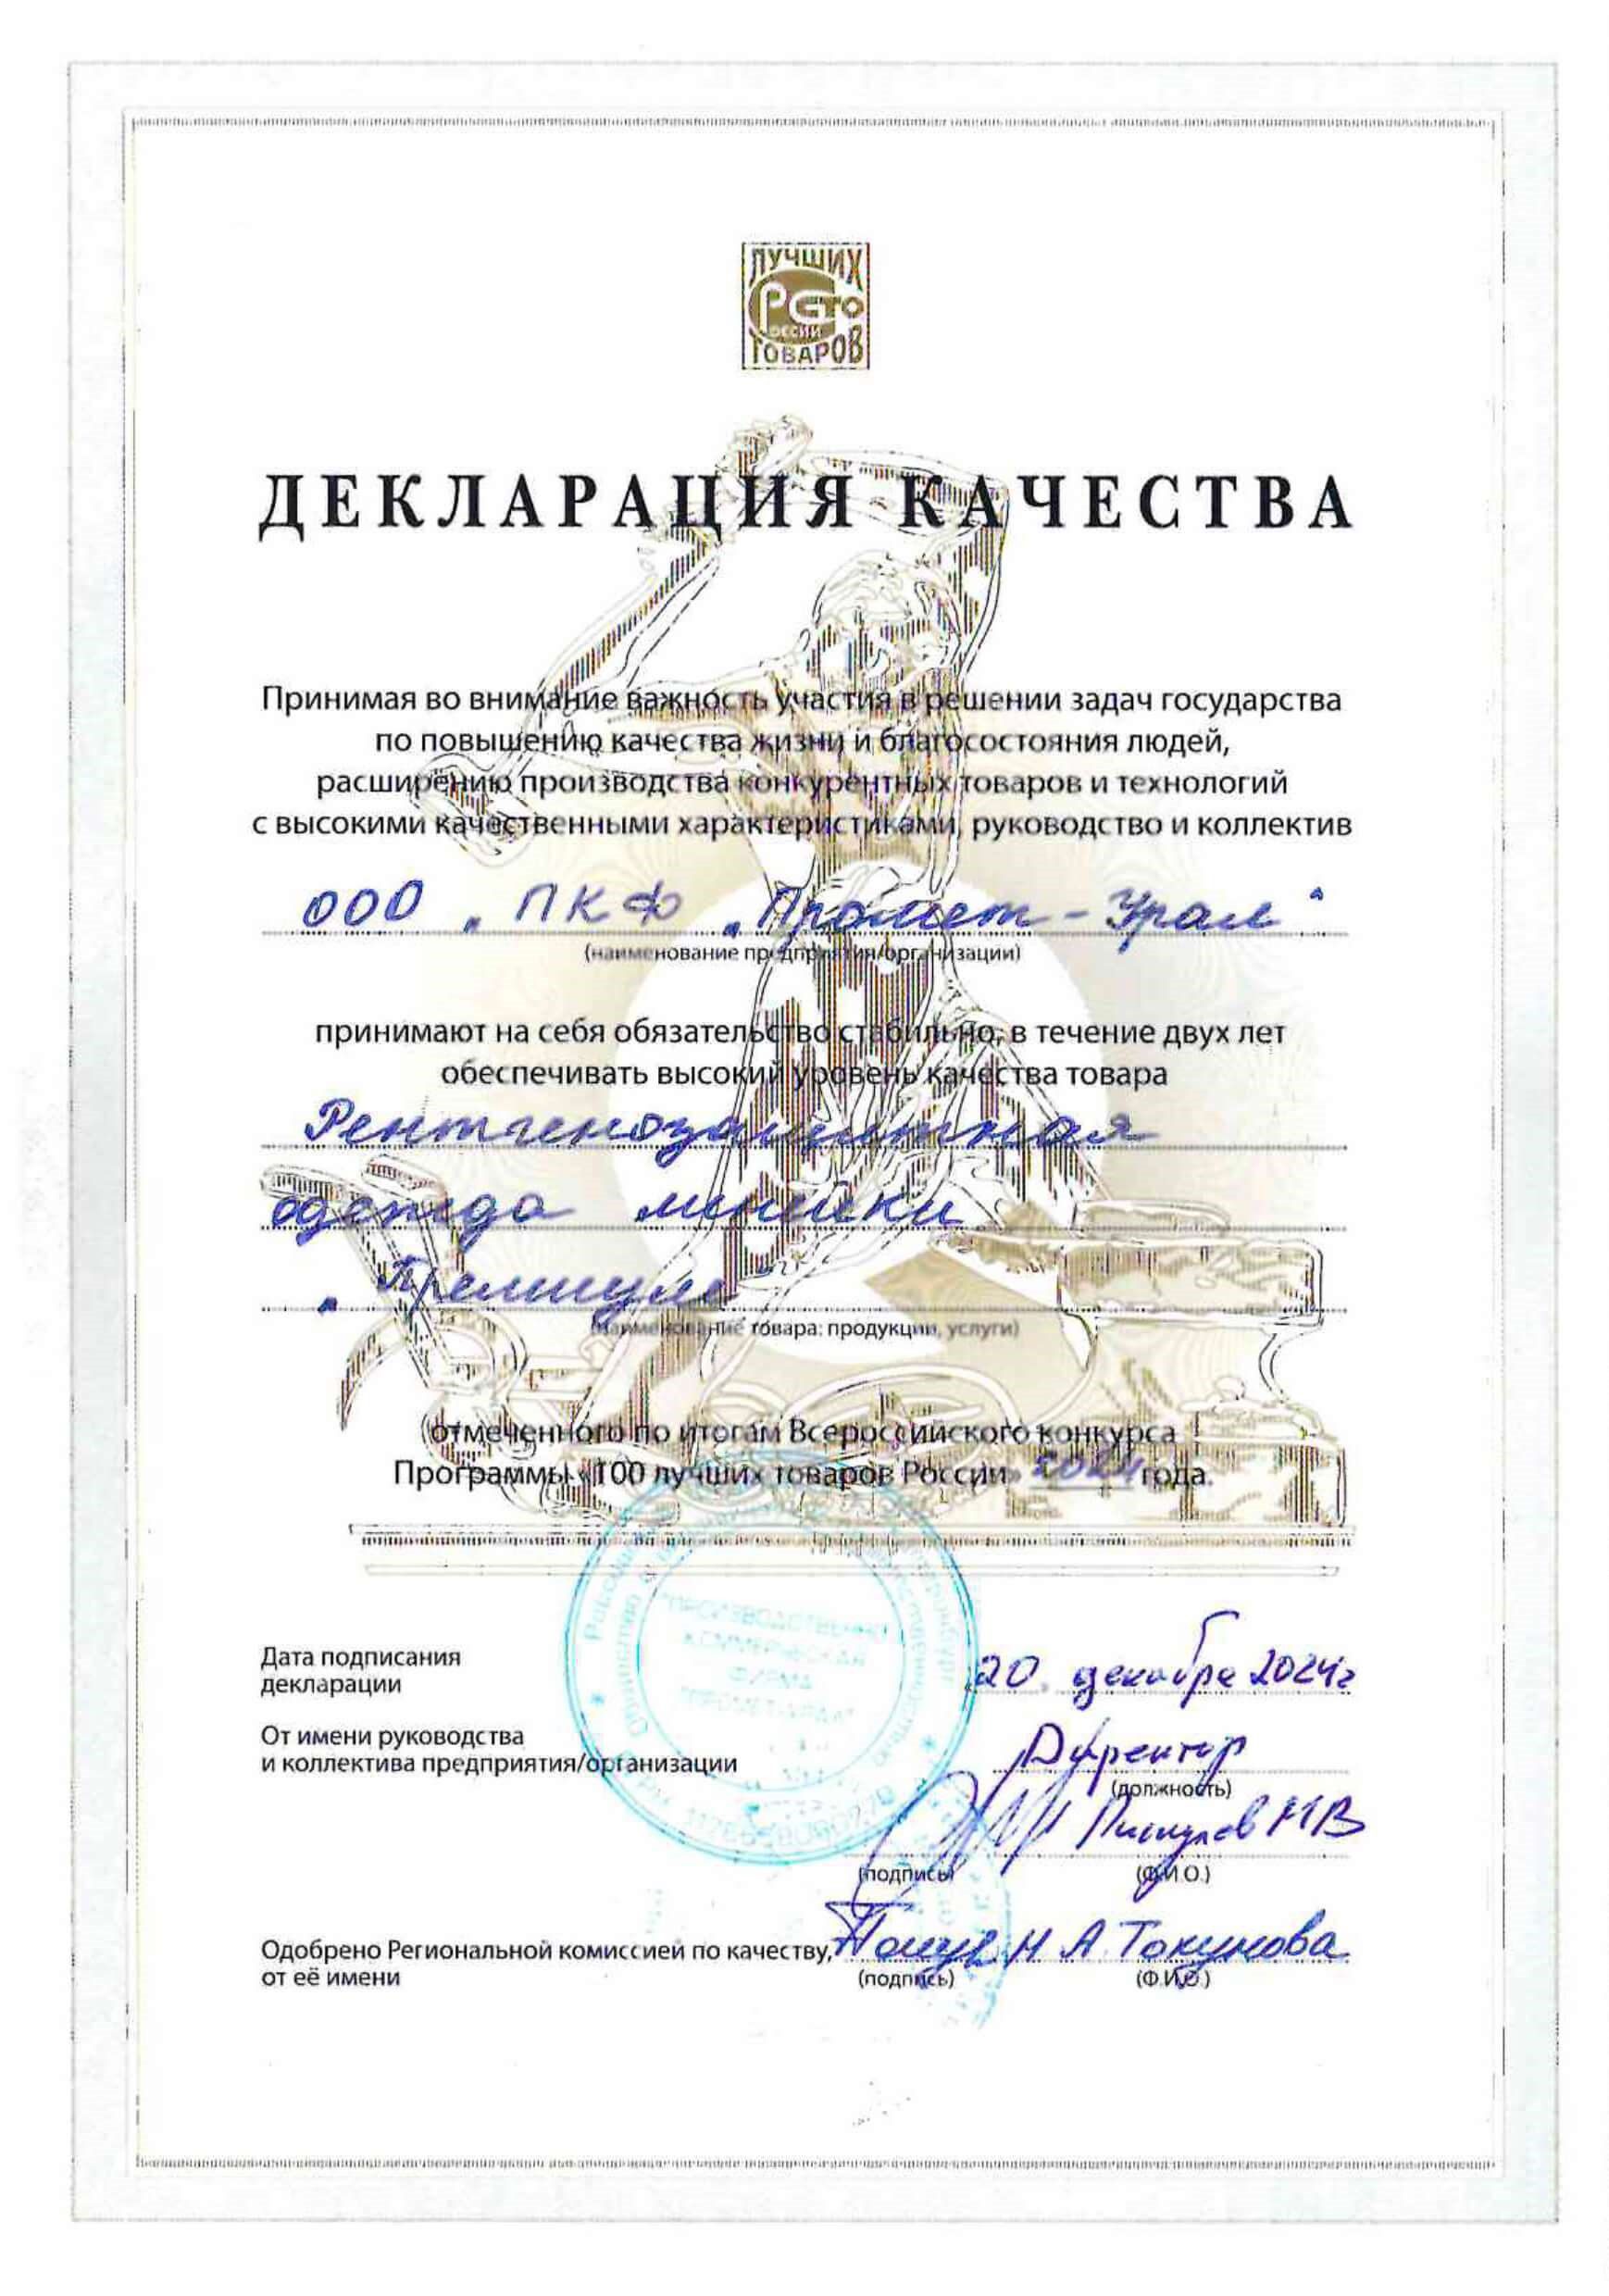 ЛУЧШИХ
РОССИИ
ТОВАРОВ
ДЕКЛАРАЦИЯ КАЧЕСТВА
Принимая во внимание важность участия в решении задач государства
по повышению качества жизни и благосостояния людей,
расширению производства конкурентных товаров и технологий
с высокими качественными характеристиками, руководство и коллектив
ООО „ПКФ „Промет-Урал"
(наименование предприятия/организации)
принимают на себя обязательство стабильно, в течение двух лет
обеспечивать высокий уровень качества товара
Рентгенозащитная
одежда линейки
„Премиум"
(наименование товара: продукции, услуги)
отмеченного по итогам Всероссийского конкурса
Программы «100 лучших товаров России» 2024 года.
ПРОИЗВОДСТВЕННО
КОММЕРЧЕСКАЯ
ФИРМА
"ПРОМЕТ-УРАЛ"
Дата подписания
декларации
20 декабря 2024г
От имени руководства
и коллектива предприятия/организации
Директор
(должность)
МВ
(подпись) (Ф.И.О.)
Одобрено Региональной комиссией по качеству,
от её имени
Н А Токунова
(подпись) (Ф.И.О.)